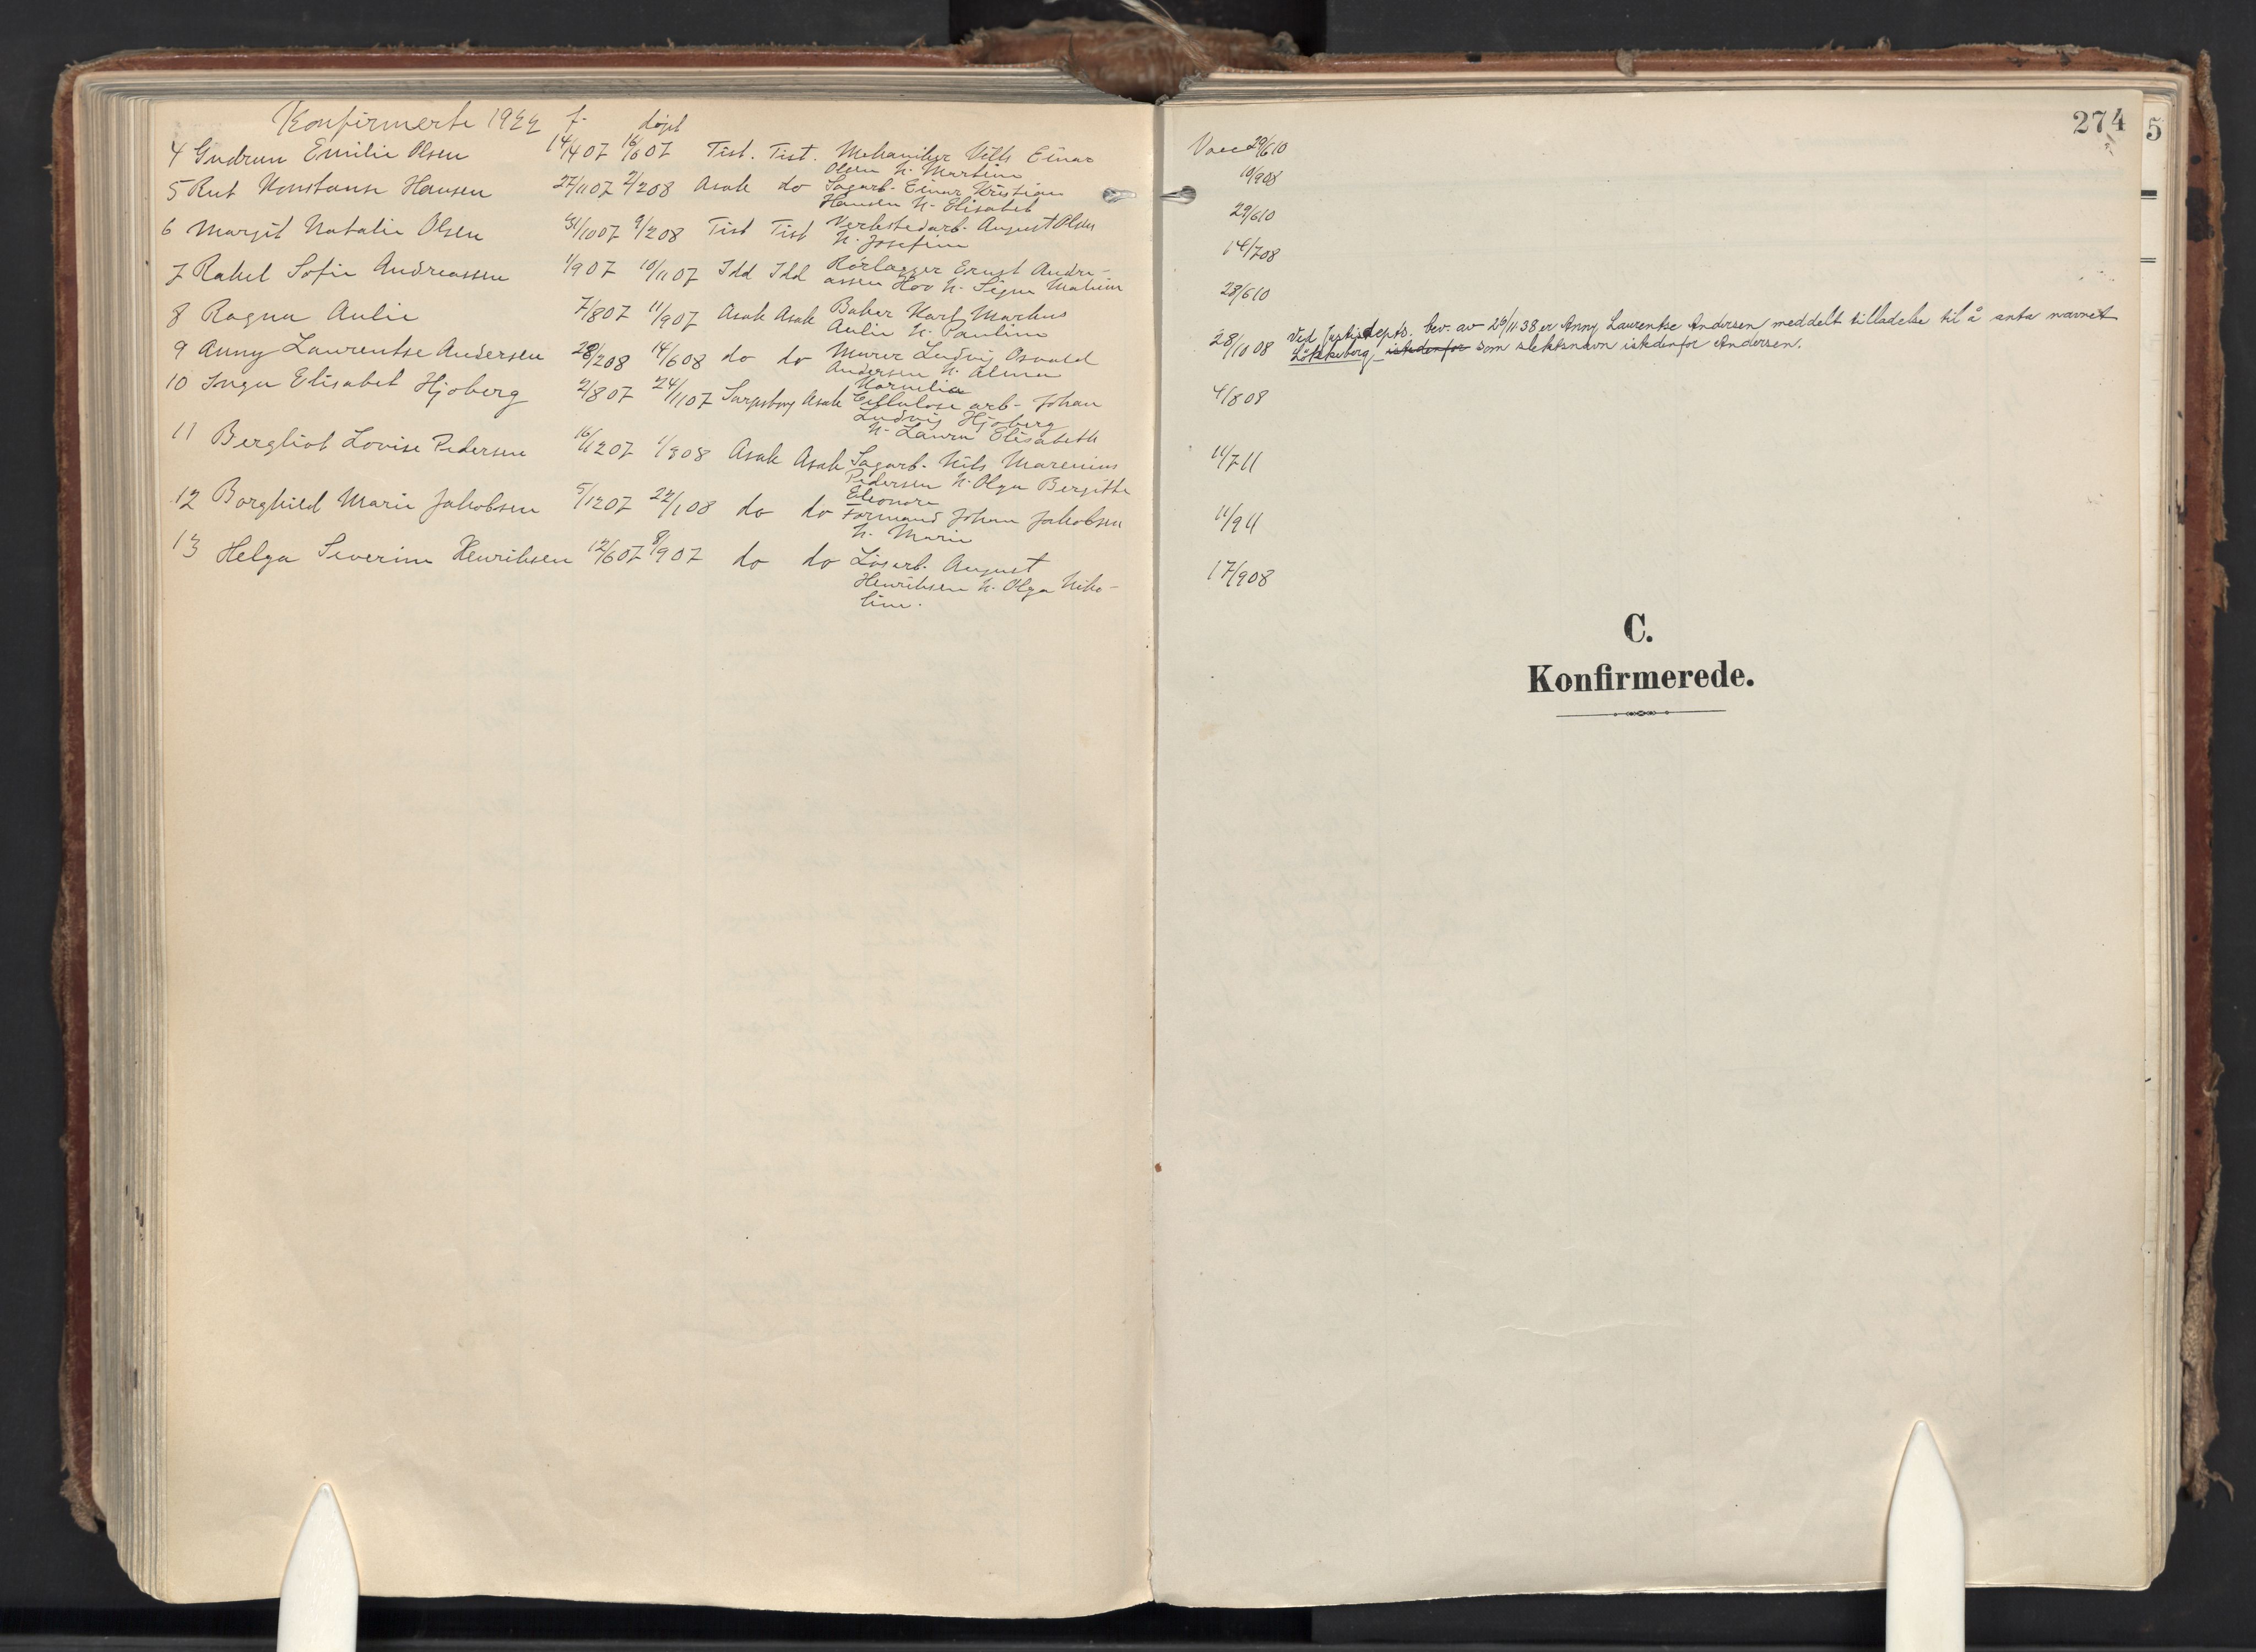 Konfirmerte 1922 f. døpt
4 Gudrun Emilie Olsen 14/4 07 16/6 07 Tist. Tist. Mekaniker Nils Einar
Olsen h. Martine
5 Rut Konstanse Hansen 27/11 07 2/2 08 Asak do Sagarb. Einar Kristian
Hansen h. Elisabet
6 Margit Natalie Olsen 31/10 07 9/2 08 Tist Tist Verkstedarb. August Olsen
h. Josefine
7 Rakel Sofie Andreassen 1/9 07 10/11 07 Idd Idd Rörlægger Ernst Andre-
assen Hov h. Signe
8 Ragna Aulie 7/8 07 11/9 07 Asak Asak Baker Karl Markus
Aulie h. Pauline
9 Anny Laurentse Andersen 28/2 08 14/6 08 do do Murer Ludvig Osvald
Andersen h. Alma
Kornelia
10 Inga Elisabet Hjoberg 2/8 07 24/11 07 Sarpsborg Asak Cellulose arb. Johan
Ludvig Hjoberg
h. Laura Elisabeth
11 Bergliot Lovise Pedersen 16/12 07 1/3 08 Asak Asak Sagarb. Nils Marenius
Pedersen h. Olga Bergitte
Eleonore
12 Borghild Marie Jakobsen 5/12 07 22/1 08 do do Formand Johan Jakobsen
h. Marie
13 Helga Severine Henriksen 12/6 07 8/9 07 do do Løsarb. August
Henriksen h. Olga Niko-
line.
274
5
Vacc 29/6 10
10/9 08
29/6 10
14/7 08
28/6 10
28/10 08 Ved Justisdepts. bev. av 29/11 38 er Anny Laurentse Andersen meddelt tilladelse til å anta navnet
Løkkeberg istedenfor som slektsnavn istedenfor Andersen.
4/8 08
14/7 11
11/9 11
17/9 08
C.
Konfirmerede.